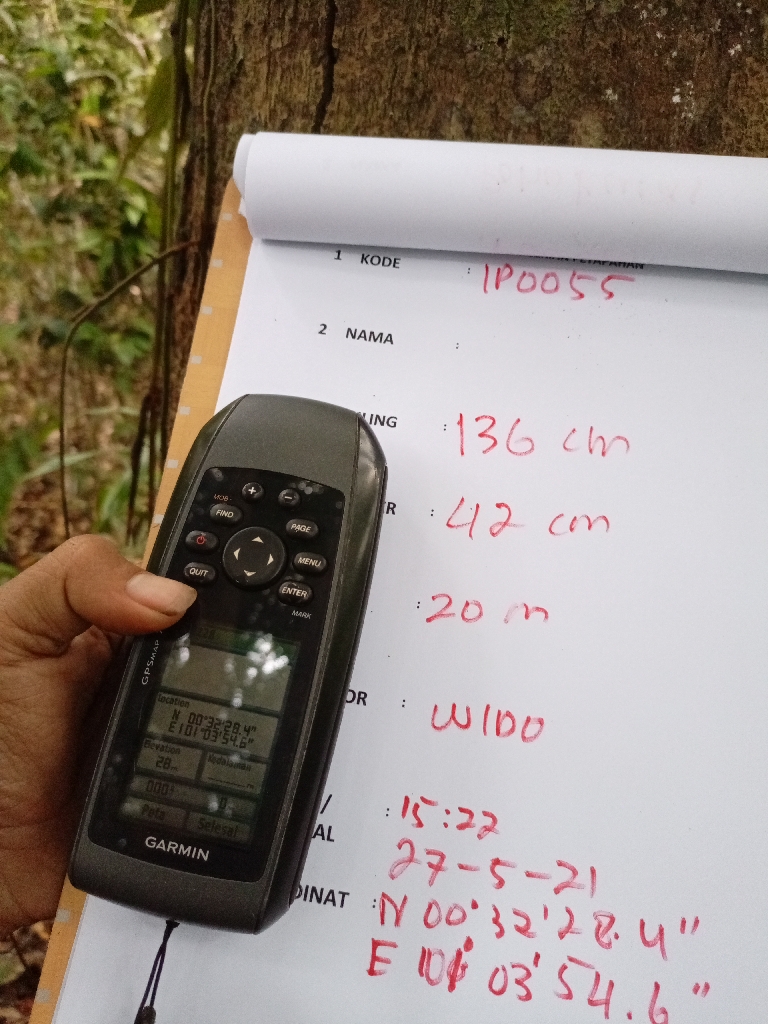 1 KODE : IP0055
2 NAMA :
LING : 136 cm
R : 42 cm
: 20 m
OR : WIDO
/ : 15:22
AL 27-5-21
DINAT : N 00°32'28.4"
E 101° 03'54.6"
MOB
FIND
PAGE
MENU
QUIT
ENTER
MARK
GPSMAP
Location
N 00°32'28.4"
E101°03'54.6"
Elevation
28m
Peta
Selesai
GARMIN